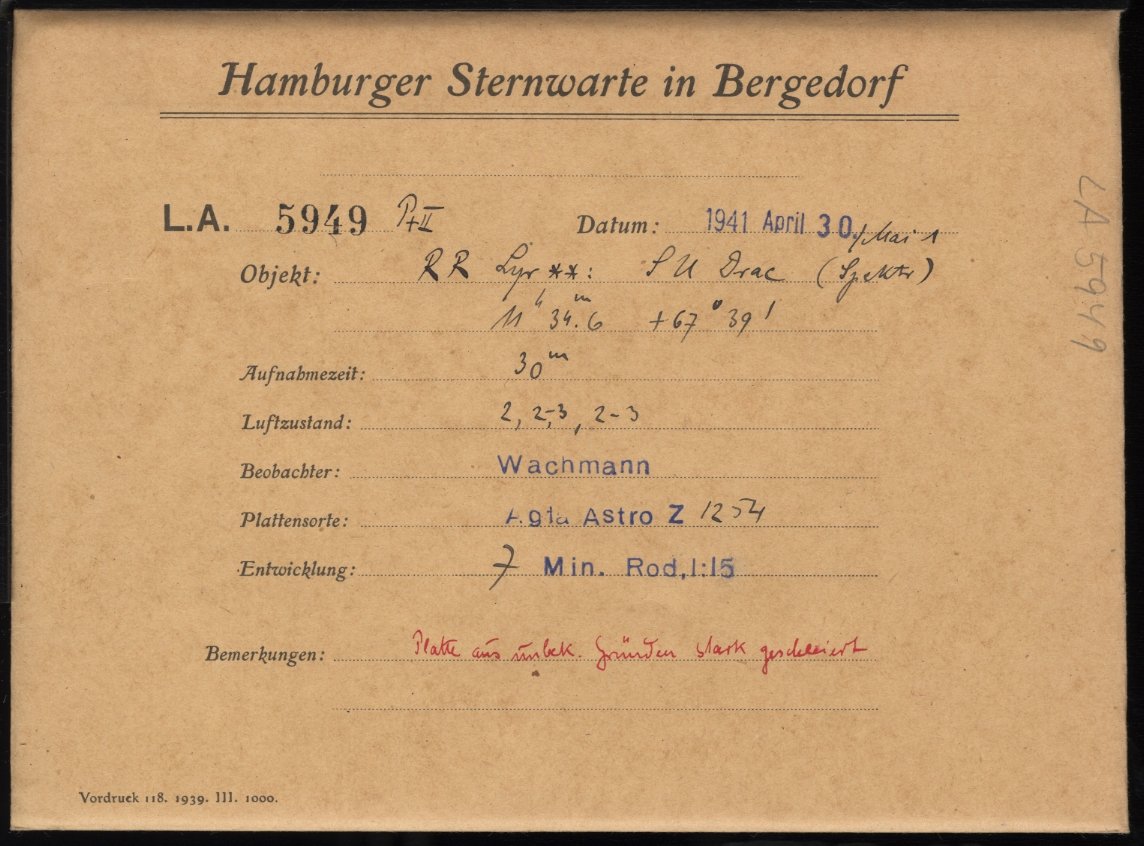 Hamburger Sternwarte in Bergedorf
L.A. 5949 P+II Datum: 1941 April 30./Mai 1
Objekt: RR Lyr **: SU Drac (Spektr)
11ʰ 34.ᵐ6 +67° 39'
Aufnahmezeit: 30ᵐ
Luftzustand: 2, 2-3, 2-3
Beobachter: Wachmann
Plattensorte: Agfa Astro Z 1254
Entwicklung: 7 Min. Rod, 1:15
Bemerkungen: Platte aus unbek. Gründen stark geschleiert
Vordruck 118. 1939. III. 1000.
LA 5949